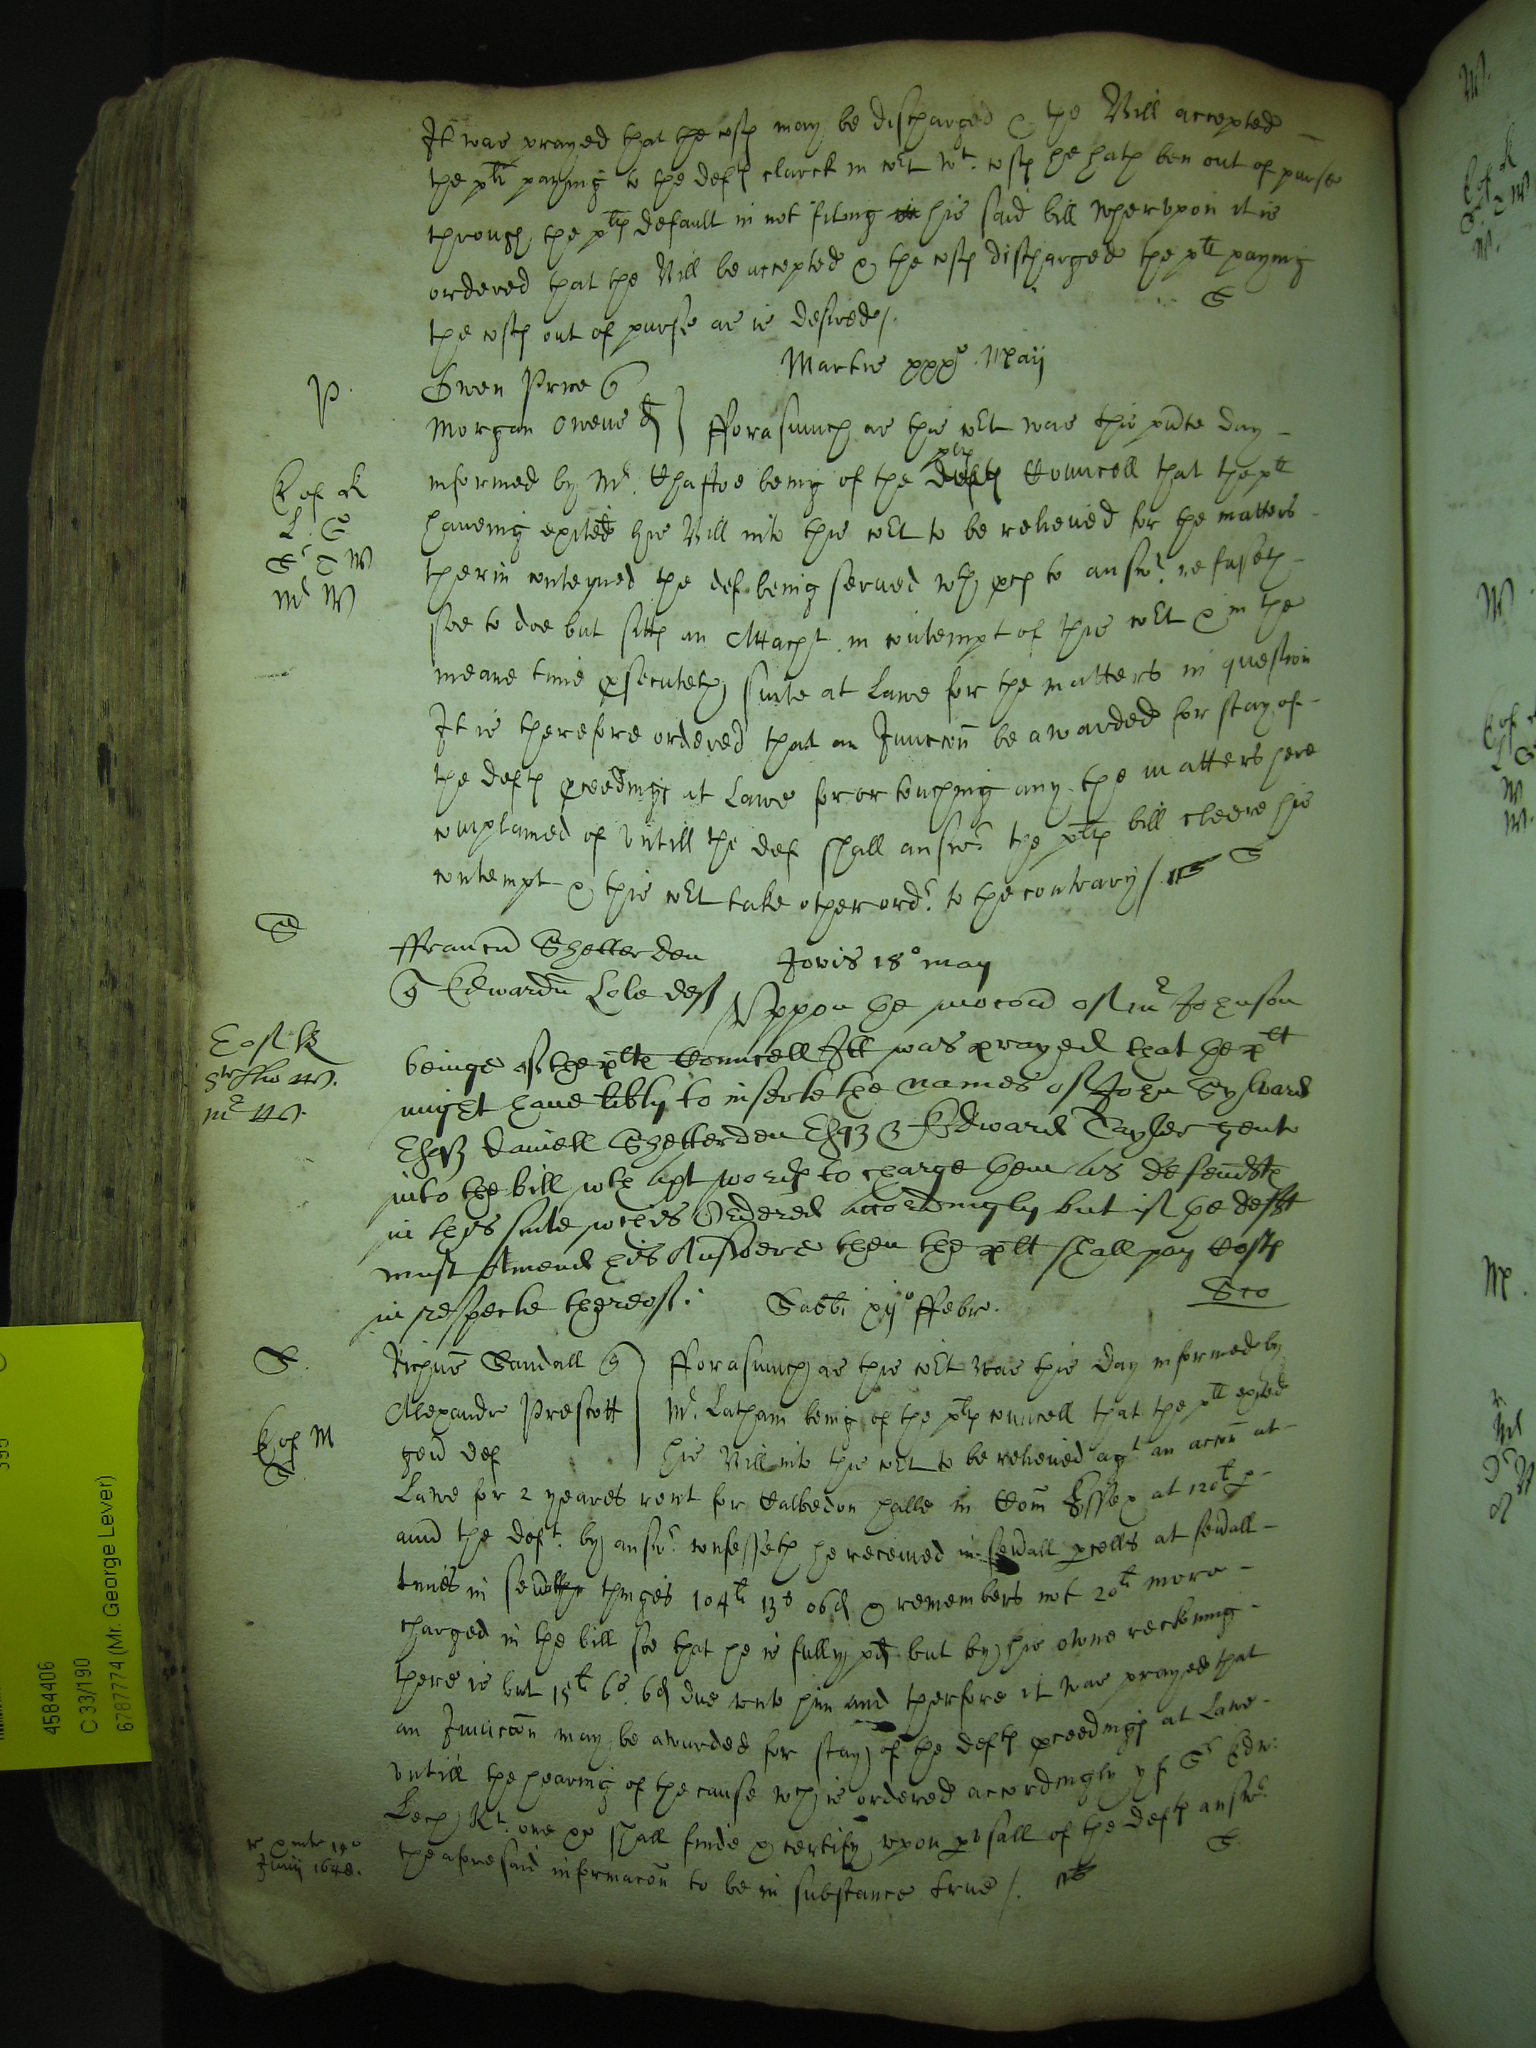 It was prayed that the costs may be discharged & the Bill accepted
the plt paying to the defts clarck in cort wt. costs he hath ben out of purse
through the plts default in not fileng his said bill Wherupon it is
ordered that the Bill be accepted & the costs discharged the plt paying
the costs out of purse as is desired /.
S
Martis xxxo. Maij
P
Owen Price q
Morgan Owens d } fforasmuch as this cort was this pnte day
informed by Mr. Chaffoe being of the plts Councell that the plt
haveing exited his Bill into this cort to be releived for the matters
therin conteyned the def being served wth pces to answr. refuseth
soe to doe but sitts an Attachmt. in contempt of this cort & in the
meane time psecuteth suite at Lawe for the matters in question
It is therefore ordered that an Iniuccon be awarded for stay of
the defts pceedings at Lawe for or touching any the matters here
complained of untill the def shall answr the plts bill cleere his
contempt & this cort take other ordr. to the contrary /.
S
S
ffrancis Shetterden
Jovis 18o may
q Edwardu Cole deff
Uppon the mocon of mr Johnson
beinge of the plts Councell Itt was prayed that the plt
might have libty to inserte the names of John Sylliard
Esqz Daniell Shetterden Esqz & Edward Tayler gent
into the bill wth apt words to charge them as defendts
in this suite wch is Ordered accordingly but if the defft
must Amend his Answere then the plt shall pay Costs
in respecte thereof.
Sco
Sabbi xijo ffebr.
S.
Richus Sandall q } fforasmuch as this cort was this day informed by
Alexandr Prescott Mr. Latham being of the plts councell that the plt exited
gen def his Bill into this cort to be releived agt an accon at
Lawe for 2 yeares rent for halle in Com Essex at 120li p
ann the deft. by answr. confesseth he received in sevall pcells at sevall
times in sevall thinges 104li 13s 06d & remembers not 20li more
charged in the bill soe that he is fully pd but by his owne reckoning
there is but 15li 6s. 6d due unto him and therfore it was prayed that
an Iniuccon may be awarded for stay of the defts pceedings at Lawe
untill the hearing of the cause wch is ordered accordingly yf Sr Edw:
Lech Kt. one &c shall finde & certify upon pusall of the defts answr.
the aforesaid informacon to be in substance true /.
S.
Junij 1648.
4584406
C 33/190
6787774 (Mr. George Lever)